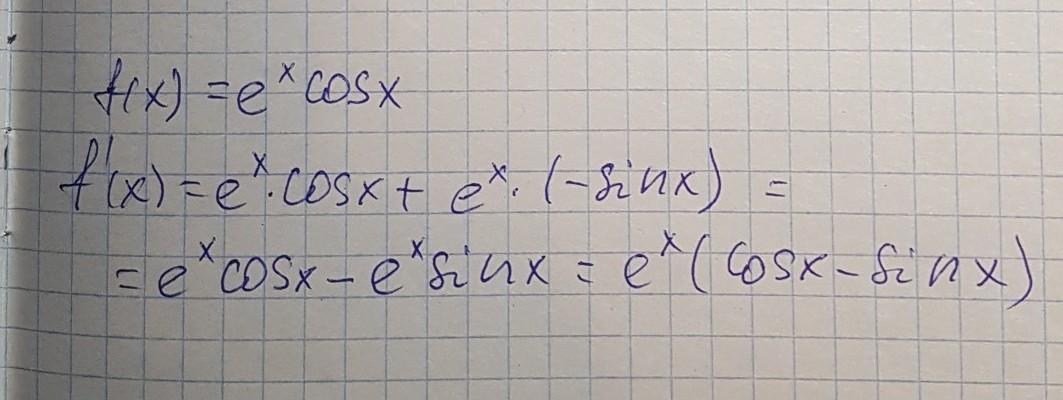 f(x) = eˣ cosx
f'(x) = eˣ · cosx + eˣ · (-sinx) =
= eˣ cosx - eˣ sinx = eˣ (cosx - sinx)